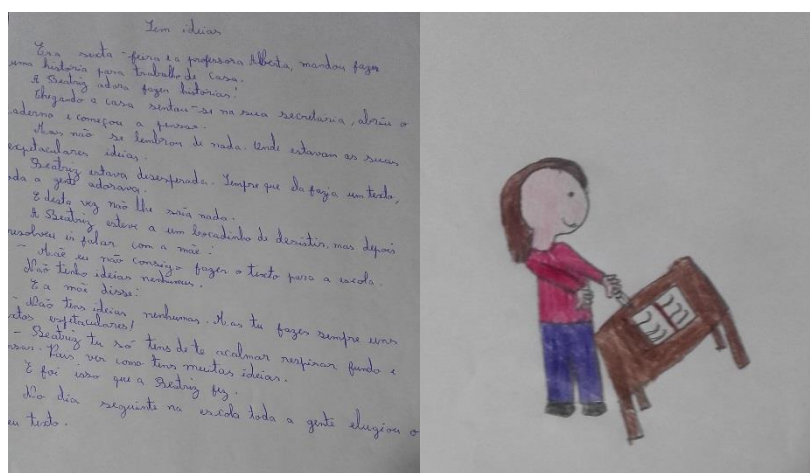 Sem ideias
Era sexta-feira e a professora Alberta, mandou fazer
uma história para trabalho de casa.
A Beatriz adora fazer histórias!
Chegando a casa sentou-se na sua secretária, abriu o
aderno e começou a pensar.
Mas não se lembrou de nada. Onde estavam as suas
espetaculares ideias.
Beatriz estava desesperada. Sempre que ela fazia um texto,
oda a gente adorava.
E desta vez não lhe saia nada.
A Beatriz esteve a um bocadinho de desistir, mas depois
resolveu ir falar com a mãe:
- Mãe eu não consigo fazer o texto para a escola.
Não tenho ideias nenhumas.
E a mãe disse:
- Não tens ideias nenhumas. Mas tu fazes sempre uns
xtos espetaculares!
- Beatriz tu só tens de te acalmar respirar fundo e
nsar. Vais ver como tens muitas ideias.
E foi isso que a Beatriz fez.
No dia seguinte na escola toda a gente elugiou o
eu texto.